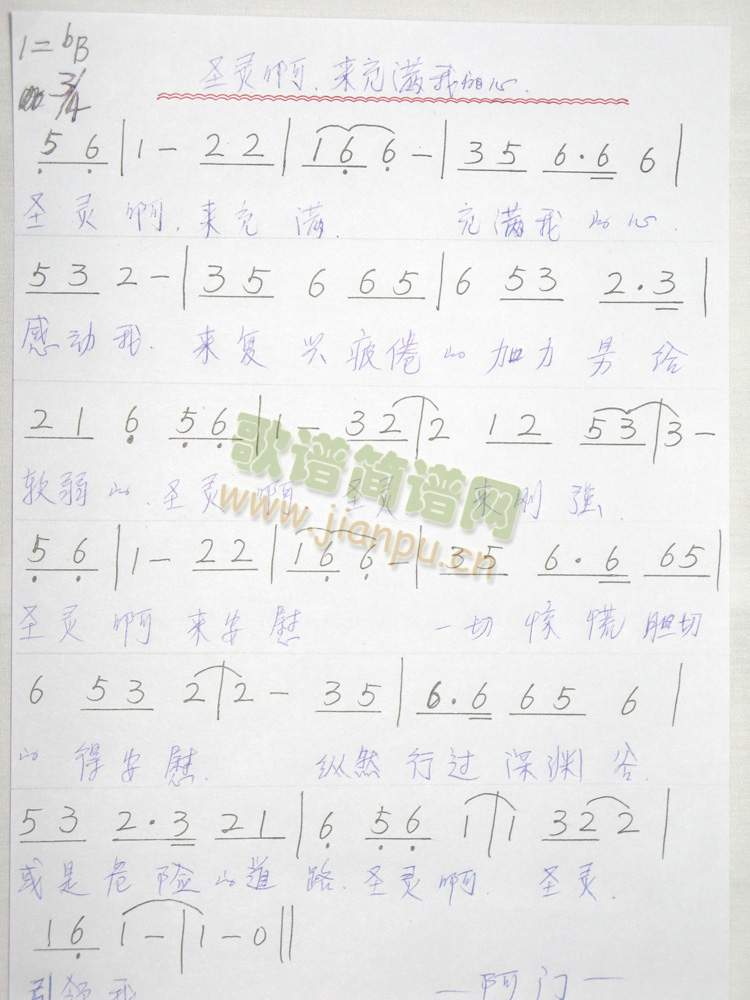 1=bB
3/4
圣灵啊,来充满我的心.
5 6 | 1 - 2 2 | 1 6 6 - | 3 5 6·6 6 |
圣灵啊,来充满. 充满我的心.
5 3 2 - | 3 5 6 6 5 | 6 5 3 2·3 |
感动我.来复兴疲倦的加力量给
2 1 6 5 6 | 1 - 3 2 | 2 1 2 5 3 | 3 -
软弱的.圣灵啊 圣灵 来刚强.
歌谱简谱网
www.jianpu.cn
5 6 | 1 - 2 2 | 1 6 6 - | 3 5 6·6 6 5 |
圣灵啊来安慰 一切惊慌胆切
6 5 3 2 | 2 - 3 5 | 6·6 6 5 6 |
的得安慰. 纵然行过深渊谷.
5 3 2·3 2 1 | 6 5 6 1 | 1 3 2 2 |
或是危险的道路.圣灵啊. 圣灵.
1 6 1 - | 1 - 0 ||
引领我 —阿门—